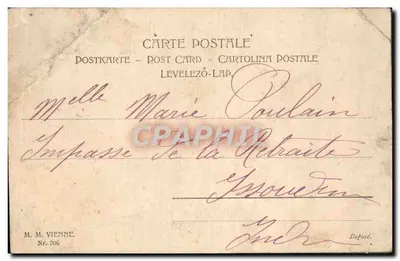 CARTE POSTALE
POSTKARTE – POST CARD – CARTOLINA POSTALE
LEVELEZŐ-LAP.
Melle Marie Poulain
CRAPHTI
Impasse de la Retraite
Issoudun
Indre
M. M. VIENNE.
Nr. 306
Déposé.